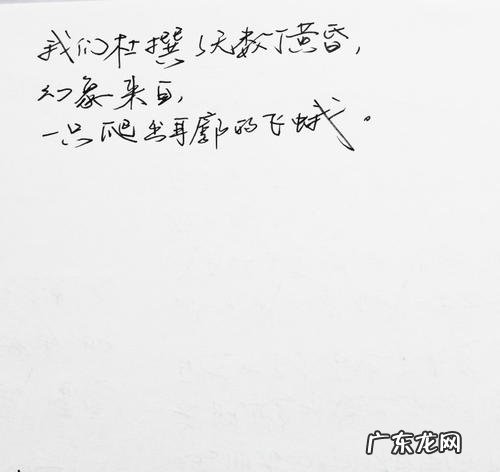 我们杜撰了无数个黄昏，
幻象来自，
一只爬出耳廓的飞蛾。
广东龙网